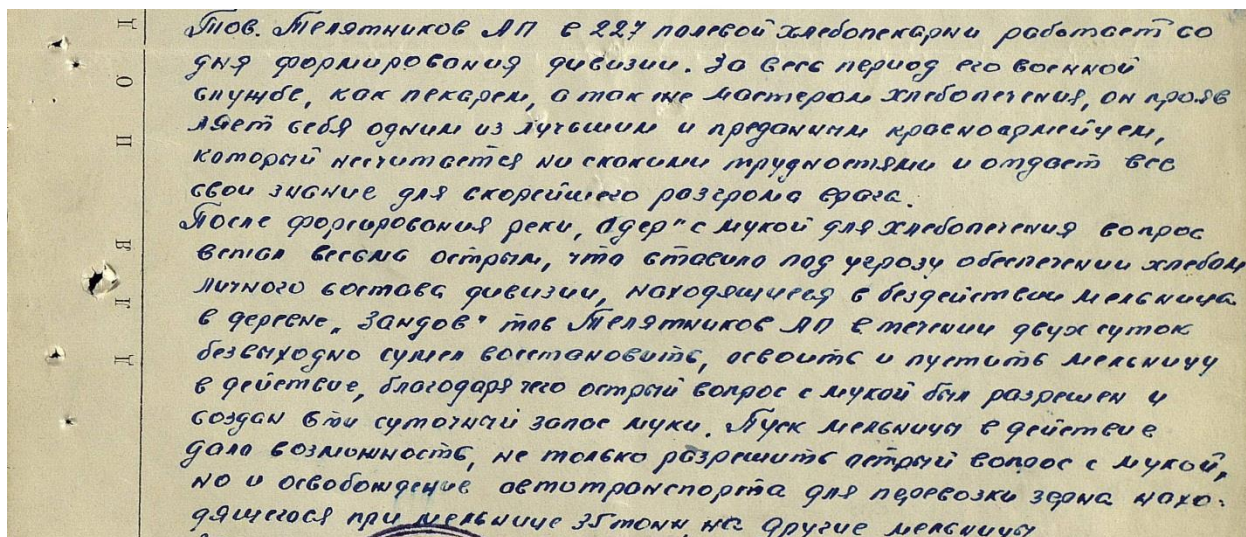 Тов. Телятников ЛП в 227 полевой хлебопекарни работает со
дня формирования дивизии. За весь период его военной
службе, как пекарем, а так же мастером хлебопечения, он прояв
ляет себя одним из лучьшим и преданным красноармейцем,
который несчитается ни скакими трудностями и отдает все
свои знание для скорейшего разгрома врага.
После форсирования реки „Одер" с мукой для хлебопечения вопрос
встал весьма острым, что ставило под угрозу обеспечении хлебом
личного состава дивизии, находящиеся в бездействии мельница
в деревне „Зандов" тов Телятников ЛП в течении двух суток
безвыходно сумел восстановить, освоить и пустить мельницу
в действие, благодаря чего острый вопрос с мукой был разрешен и
создан 6ти суточный запас муки. Пуск мельницы в действие
дало возможность, не только разрешить острый вопрос с мукой,
но и освобождение автотранспорта для перевозки зерна нахо-
дящегося при мельнице 35 тонн на другие мельницы